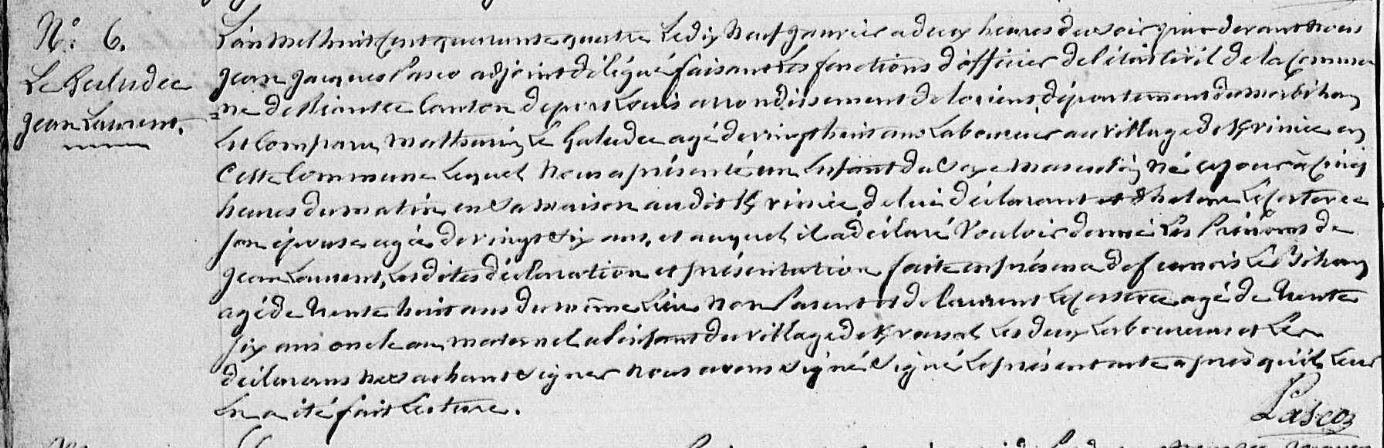 N.° 6.
Le Guludec
jean Laurent.
L'an mil huit cent quarante quatre Le dix Neuf janvier a deux heures du soir par devant Nous
jean jacques Lasco adjoint délégué faisant Les fonctions d'officier de l'état Civil de la Commu
=ne de Riantec Canton de port Louis arrondissement de Lorient, département du morbihan
Est Comparu mathurin Le Guludec agé de vingt huit ans Laboureur au village de K/vinie en
Cette Commune Lequel Nous a présenté un Enfant du Sexe masculin Né ce jour à cinq
heures du matin en sa maison au dit K/vinie, de lui déclarant et d'helene
son épouse agée de vingt six ans, et auquel il a déclaré Vouloir donner Les Prénoms de
jean Laurent, Les dites déclaration et présentation faite en présence de francois Le Bihan
agé de trente huit ans du même Lieu Non Parent et de laurent agé de trente
six ans oncle au maternel a l'enfant du village de Les deux Laboureurs et Les
déclarans ne sachant signer Nous avons signé Signé Le présent acte après qu'il Leur
En a été fait Lecture.
Lasco